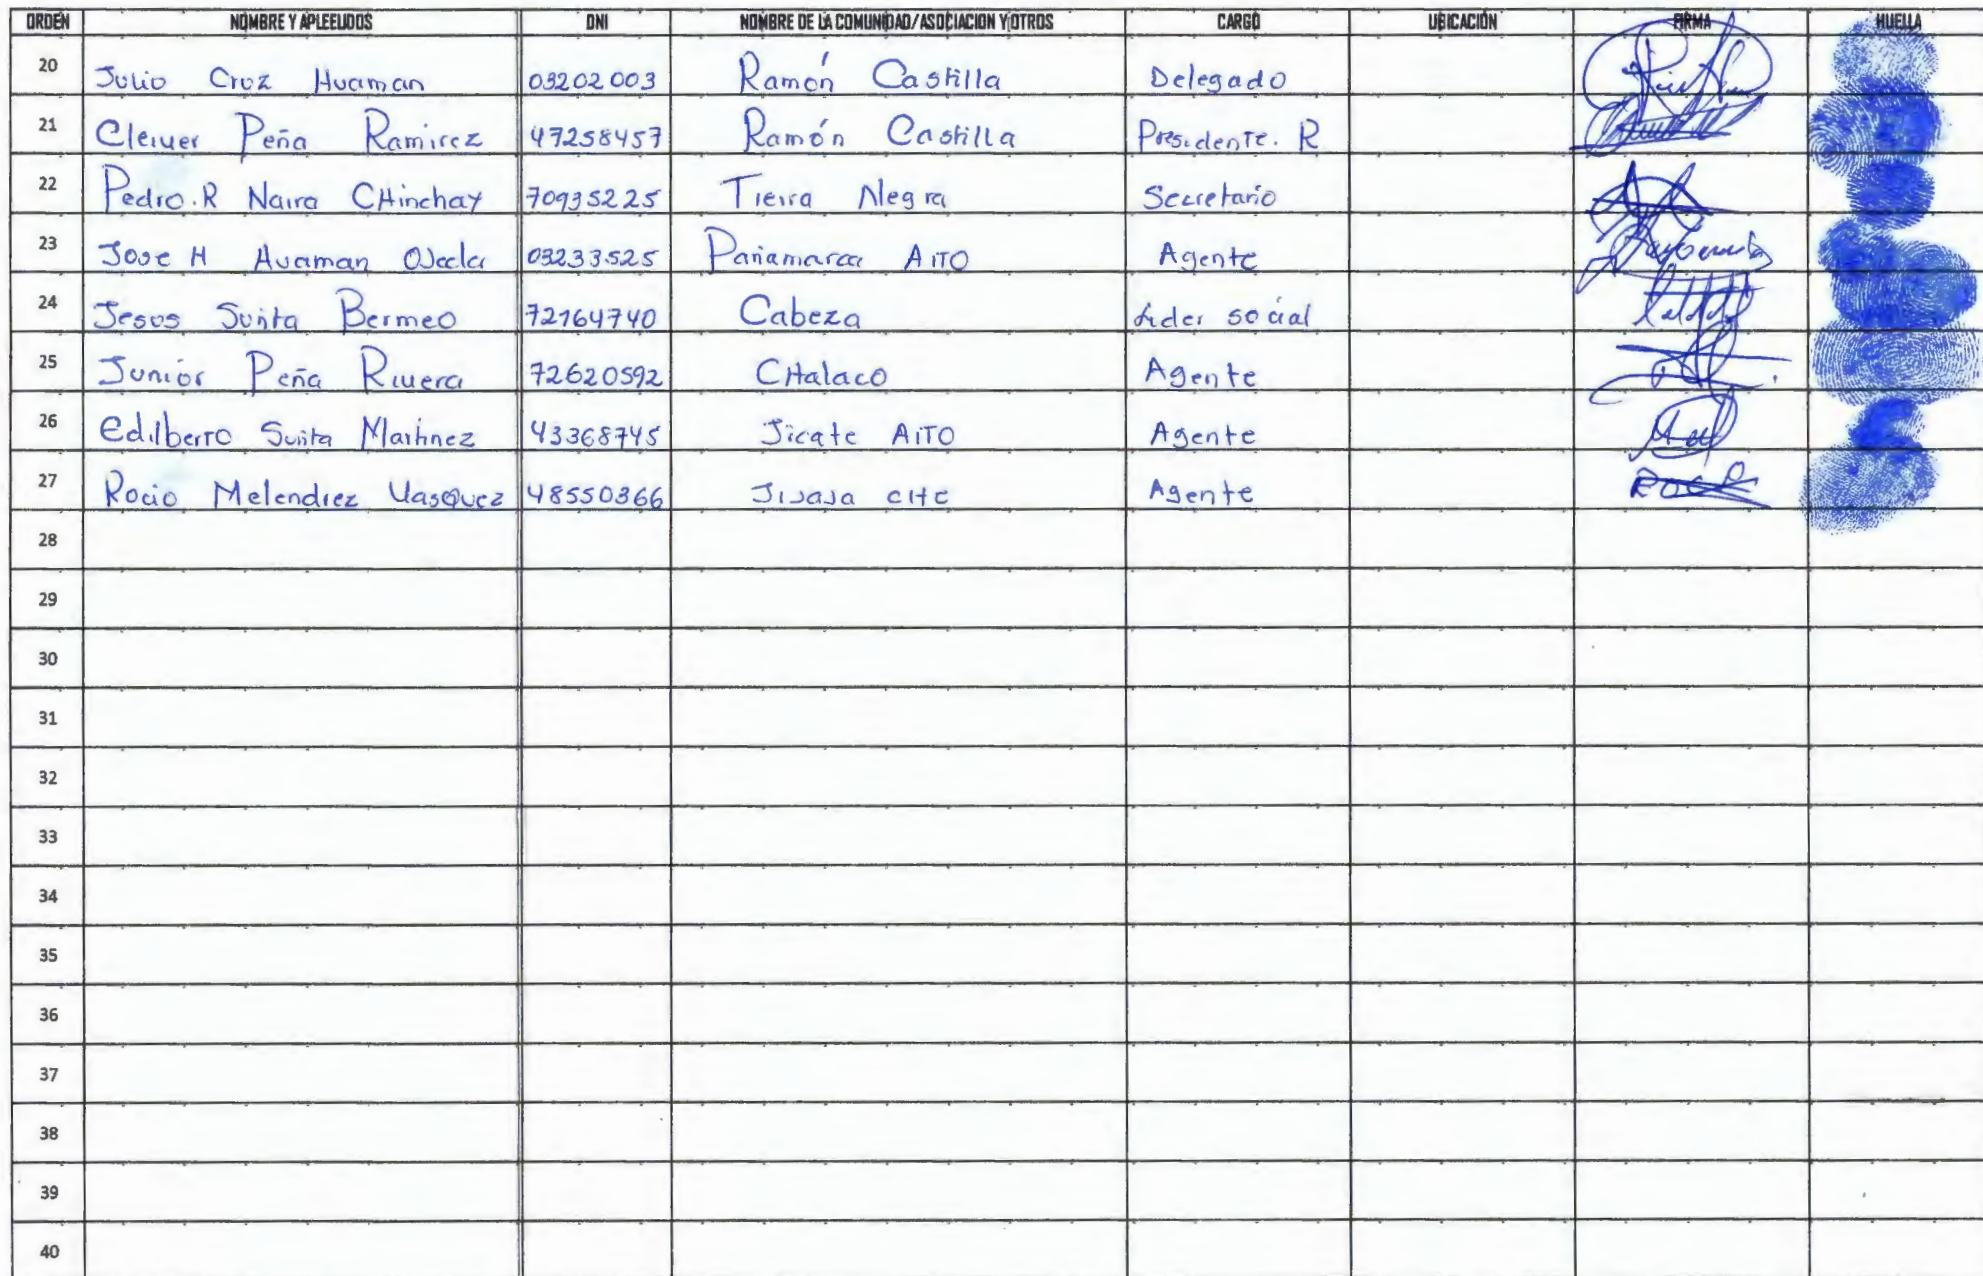 ORDEN NOMBRE Y APLEELIDOS DNI NOMBRE DE LA COMUNIDAD/ASOCIACION Y OTROS CARGO UBICACIÓN FIRMA HUELLA
20 Julio Cruz Huaman 03202003 Ramón Castilla Delegado
21 Clewer Peña Ramirez 47258457 Ramón Castilla Presidente. R
22 Pedro.R Naira CHinchay 70935225 Tierra Negra Secretario
23 Jose H Huaman 03233525 Pariamarca AlTO Agente
24 Jesus Surita Bermeo 72164740 Cabeza Lider social
25 Junior Peña Rivera 72620592 CHalaco Agente
26 Edilberto Surita Martinez 43368745 Jicate AlTO Agente
27 Rocio Melendrez Vasquez 48550366 Agente
28
29
30
31
32
33
34
35
36
37
38
39
40